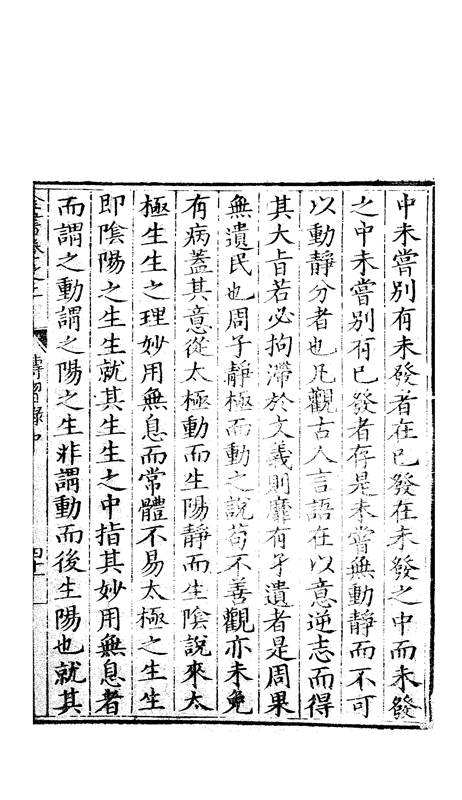 中未嘗別有未發者在已發在未發之中而未發
之中未嘗別有已發者存是未嘗無動靜而不可
以動靜分者也凡觀古人言語在以意逆志而得
其大旨若必拘滯於文義則靡有孑遺者是周果
無遺民也周子靜極而動之說苟不善觀亦未免
有病蓋其意從太極動而生陽靜而生陰說來太
極生生之理妙用無息而常體不易太極之生生
即陰陽之生生就其生生之中指其妙用無息者
而謂之動謂之陽之生非謂動而後生陽也就其
傳習錄中
四十一